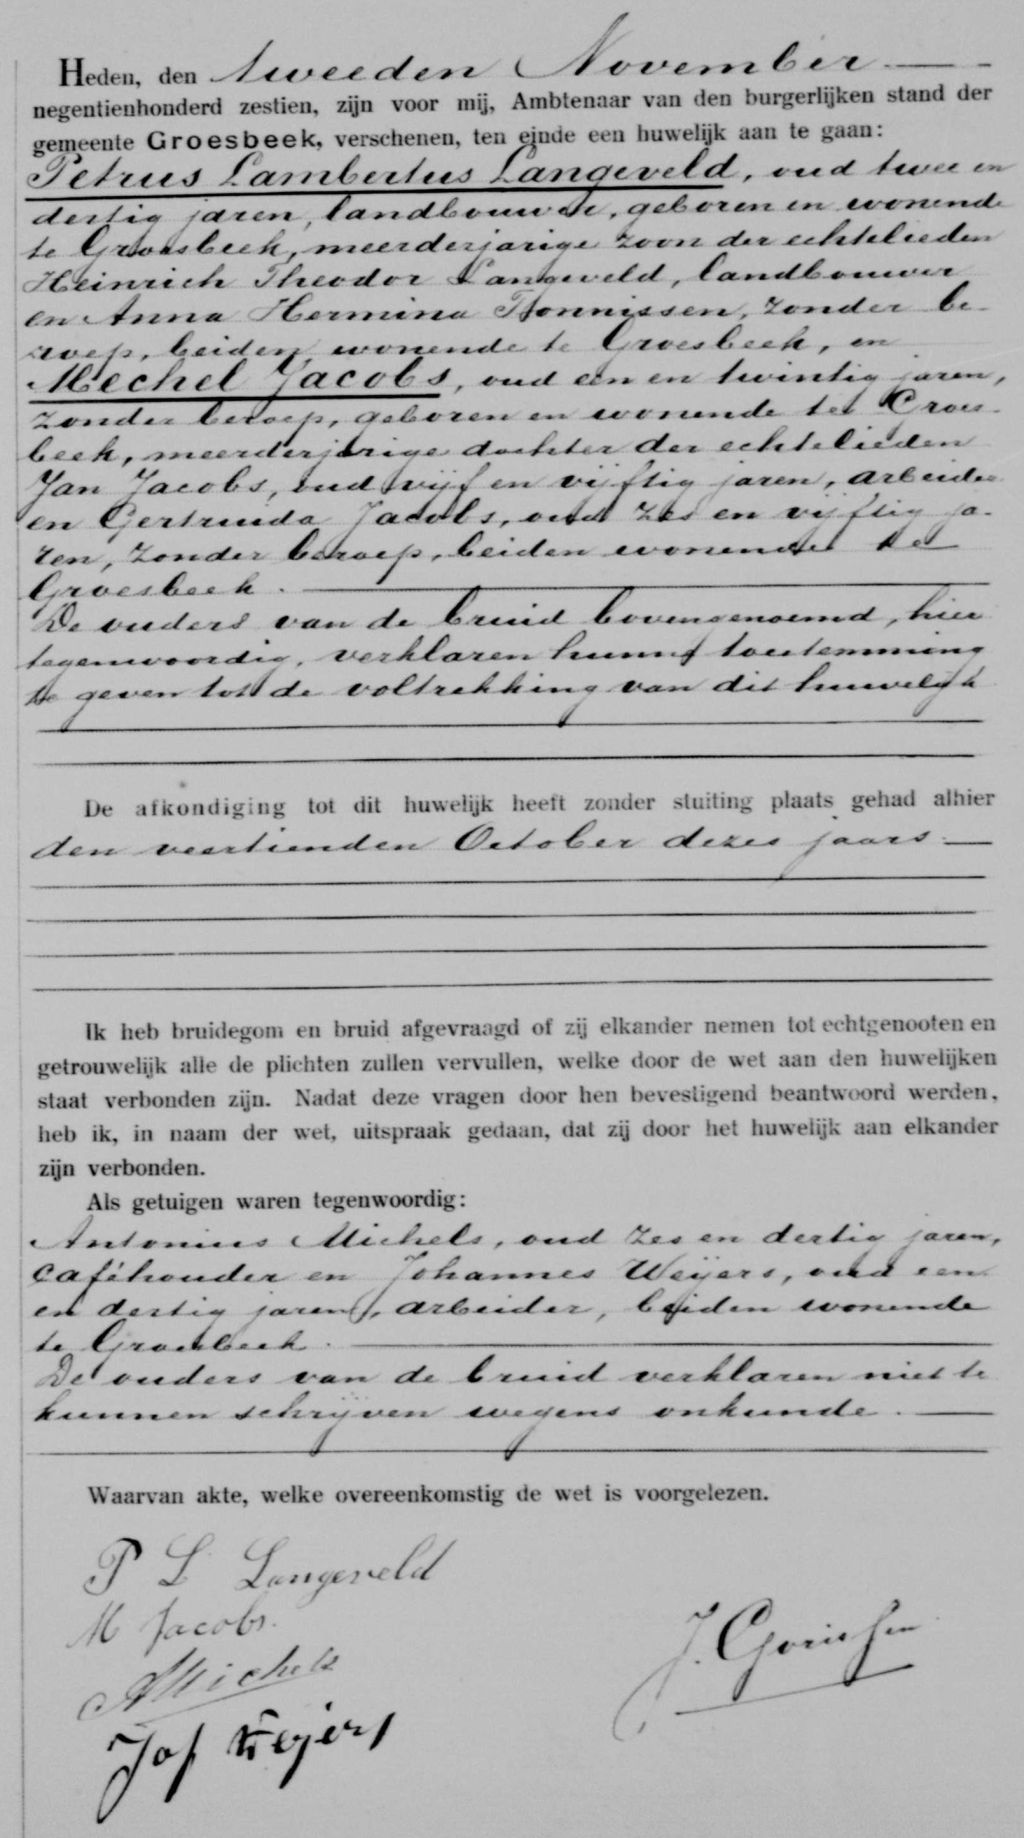 Heden, den tweeden November
negentienhonderd zestien, zijn voor mij, Ambtenaar van den burgerlijken stand der
gemeente Groesbeek, verschenen, ten einde een huwelijk aan te gaan:
Petrus Lambertus Langeveld, oud twee en
dertig jaren, landbouwer, geboren en wonende
te Groesbeek, meerderjarige zoon der echtelieden
Heinrich Theodor Langeveld, landbouwer
en Anna Hermina Thonnissen, zonder be-
roep, beiden wonende te Groesbeek, en
Mechel Jacobs, oud een en twintig jaren,
zonder beroep, geboren en wonende te Groes-
beek, meerderjarige dochter der echtelieden
Jan Jacobs, oud vijf en vijftig jaren, arbeider
en Gertruida Jacobs, oud zes en vijftig ja-
ren, zonder beroep, beiden wonende te
Groesbeek.
De ouders van de bruid bovengenoemd, hier
tegenwoordig, verklaren hunne toestemming
te geven tot de voltrekking van dit huwelijk
De afkondiging tot dit huwelijk heeft zonder stuiting plaats gehad alhier
den veertienden October dezes jaars.
Ik heb bruidegom en bruid afgevraagd of zij elkander nemen tot echtgenooten en
getrouwelijk alle de plichten zullen vervullen, welke door de wet aan den huwelijken
staat verbonden zijn. Nadat deze vragen door hen bevestigend beantwoord werden,
heb ik, in naam der wet, uitspraak gedaan, dat zij door het huwelijk aan elkander
zijn verbonden.
Als getuigen waren tegenwoordig:
Antonius Michels, oud zes en dertig jaren,
caféhouder en Johannes Weijers, oud een
en dertig jaren, arbeider, beiden wonende
te Groesbeek.
De ouders van de bruid verklaren niet te
kunnen schrijven wegens onkunde.
Waarvan akte, welke overeenkomstig de wet is voorgelezen.
P L Langeveld
M Jacobs.
AMichels
J. Gorissen
Joh Weijers